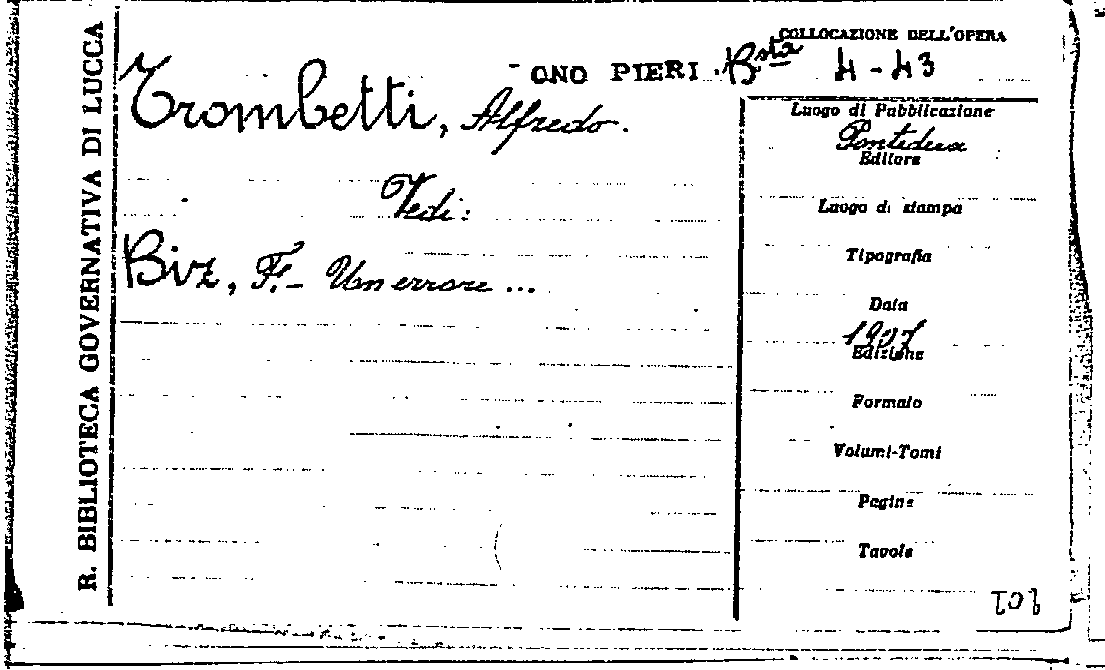 R. BIBLIOTECA GOVERNATIVA DI LUCCA
COLLOCAZIONE DELL'OPERA
ONO PIERI Bsta 4-43
Trombetti, Alfredo.
Vedi:
Biz, F.- Un errore ...
Luogo di Pubblicazione
Pontedera
Editore
Luogo di stampa
Tipografia
Data
1907
Edizione
Formato
Volumi-Tomi
Pagine
Tavole